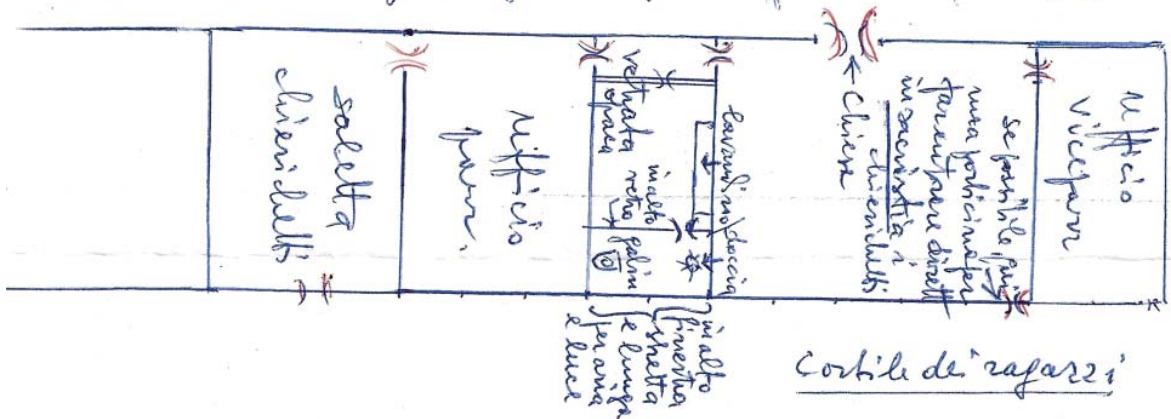 saletta
chierichetti
Ufficio
parr.
vetrata
opaca
in alto
retro
lavandino/doccia
in alto
finestra
stretta
e lunga
per aria
e luce
← Chiesa
se possibile, qui
una porticina per
far entrare dirett.
in sacrestia i
chierichetti
Ufficio
Viceparr.
Cortile dei ragazzi